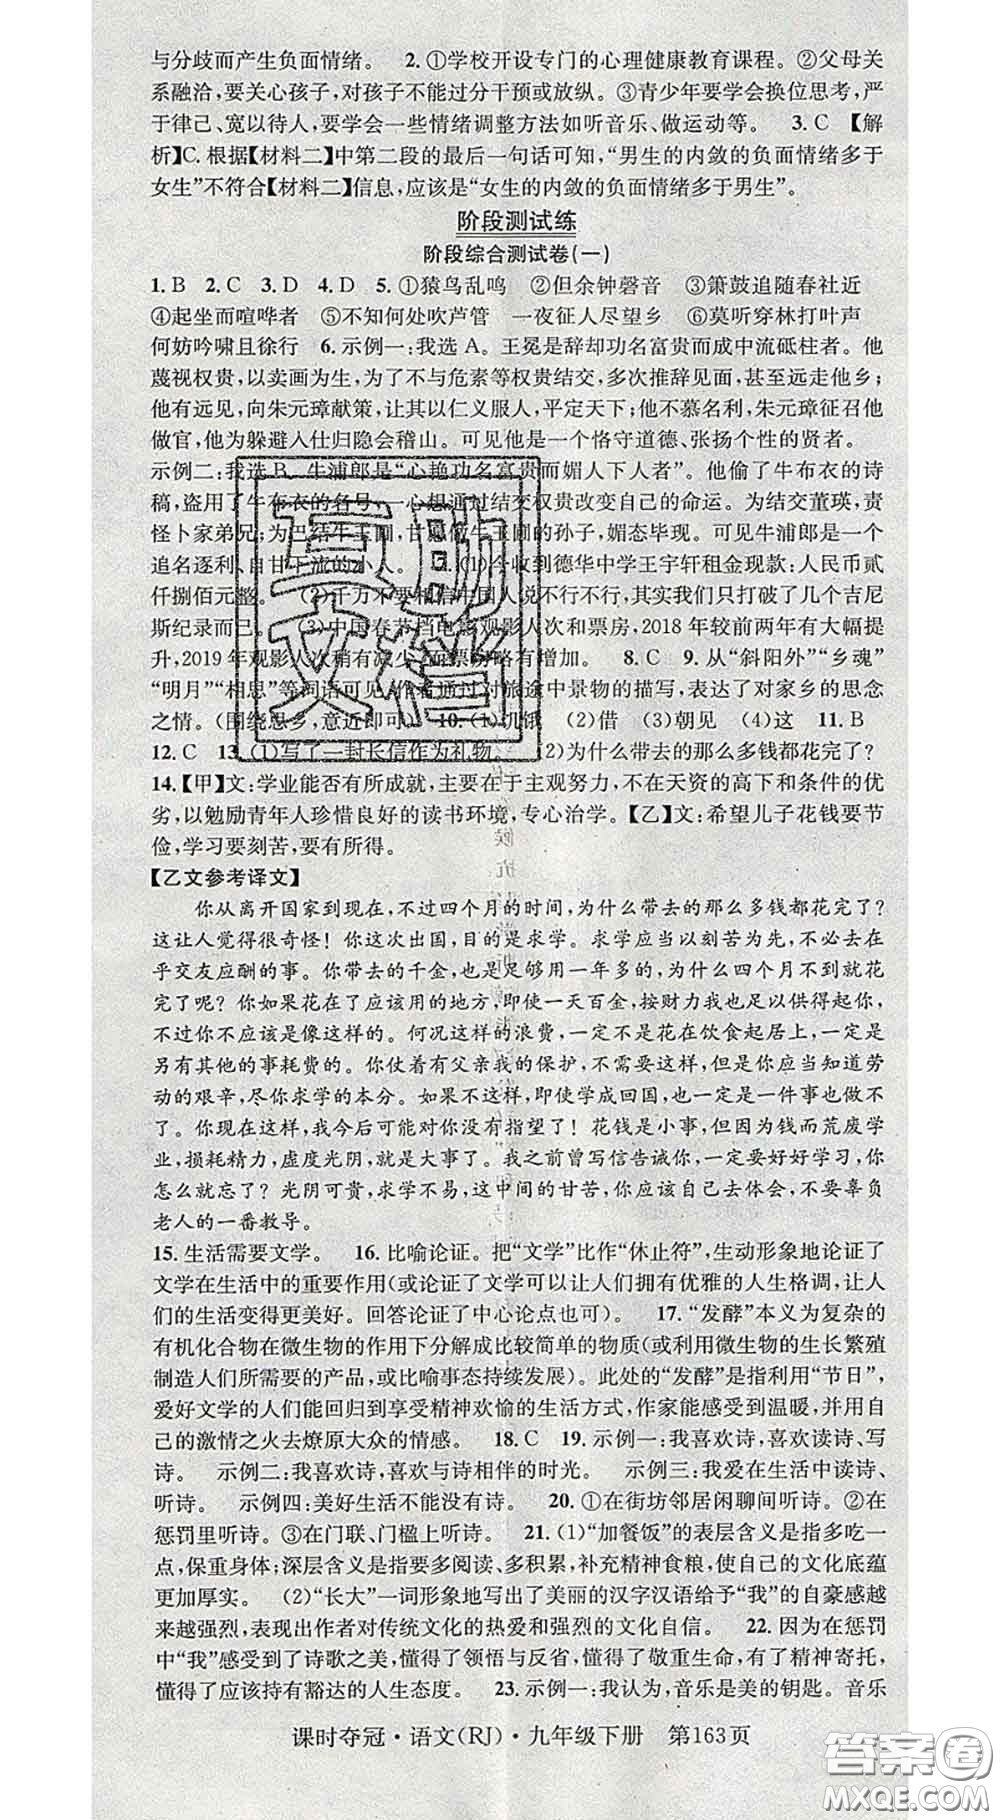 与分歧而产生负面情绪。　2. ①学校开设专门的心理健康教育课程。②父母关
系融洽,要关心孩子,对孩子不能过分干预或放纵。③青少年要学会换位思考,严
于律己、宽以待人,要学会一些情绪调整方法如听音乐、做运动等。　3. C　【解
析】C. 根据【材料二】中第二段的最后一句话可知,“男生的内敛的负面情绪多于
女生”不符合【材料二】信息,应该是“女生的内敛的负面情绪多于男生”。
阶段测试练
阶段综合测试卷(一)
1. B　2. C　3. D　4. D　5. ①猿鸟乱鸣　②但余钟磬音　③箫鼓追随春社近
④起坐而喧哗者　⑤不知何处吹芦管　一夜征人尽望乡　⑥莫听穿林打叶声
何妨吟啸且徐行　6. 示例一:我选 A。王冕是辞却功名富贵而成中流砥柱者。他
蔑视权贵,以卖画为生,为了不与危素等权贵结交,多次推辞见面,甚至远走他乡;
他有远见,向朱元璋献策,让其以仁义服人,平定天下;他不慕名利,朱元璋征召他
做官,他为躲避入仕归隐会稽山。可见他是一个恪守道德、张扬个性的贤者。
示例二:我选 B。牛浦郎是“心艳功名富贵而媚人下人者”。他偷了牛布衣的诗
稿,盗用了牛布衣的名号,一心想通过结交权贵改变自己的命运。为结交董瑛,责
怪卜家弟兄;为巴结牛玉圃,甘愿做牛玉圃的孙子,媚态毕现。可见牛浦郎是一个
追名逐利、自甘下流的小人。　7. (1)今收到德华中学王宇轩租金现款:人民币贰
仟捌佰元整。　(2)千万不要相信中国人说不行不行,其实我们只打破了几个吉尼
斯纪录而已。　(3)中国春节档电影观影人次和票房,2018 年较前两年有大幅提
升,2019 年观影人次稍有减少,而票房略有增加。　8. C　9. 从“斜阳外”“乡魂”
“明月”“相思”等词语可见,作者通过对旅途中景物的描写,表达了对家乡的思念
之情。(围绕思乡,意近即可)　10. (1)饥饿　(2)借　(3)朝见　(4)这　11. B
12. C　13. (1)写了一封长信作为礼物。　(2)为什么带去的那么多钱都花完了?
14.【甲】文:学业能否有所成就,主要在于主观努力,不在天资的高下和条件的优
劣,以勉励青年人珍惜良好的读书环境,专心治学。【乙】文:希望儿子花钱要节
俭,学习要刻苦,要有所得。
【乙文参考译文】
你从离开国家到现在,不过四个月的时间,为什么带去的那么多钱都花完了?
这让人觉得很奇怪! 你这次出国,目的是求学。求学应当以刻苦为先,不必去在
乎交友应酬的事。你带去的千金,也是足够用一年多的,为什么四个月不到就花
完了呢? 你如果花在了应该用的地方,即使一天百金,按财力我也供得起你,
不过你不应该是像这样的。何况这样的浪费,一定不是花在饮食起居上,一定是
另有其他的事耗费的。你仗着有父亲我的保护,不需忧虑,但是你应当知道劳
动的艰辛,尽你求学的本分。如果不这样,即使学成回国,也一定是一件事也做不
了。你现在这样,我今后可能对你没有指望了! 花钱是小事,但因为钱而荒废学
业,损耗精力,虚度光阴,就是大事了。我之前曾写信告诫你,一定要好好学习,你
怎么就忘了? 光阴可贵,求学不易,这其中的甘苦,你应该自己去体会,不要辜负
老人的一番教导。
15. 生活需要文学。　16. 比喻论证。把“文学”比作“休止符”,生动形象地论证了
文学在生活中的重要作用(或论证了文学可以让人们拥有优雅的人生格调,让人
们的生活变得更美好。回答论证了中心论点也可)。　17. “发酵”本义为复杂的
有机化合物在微生物的作用下分解成比较简单的物质(或利用微生物的生长繁殖
制造人们所需要的产品,或比喻事态持续发展)。此处的“发酵”是指利用“节日”,
爱好文学的人们能回归到享受精神欢愉的生活方式,作家能感受到温暖,并用自
己的激情之火去燎原大众的情感。　18. C　19. 示例一:我喜欢诗,喜欢读诗、写
诗。　示例二:我喜欢诗,喜欢与诗相伴的时光。　示例三:我爱在生活中读诗、
听诗。　示例四:美好生活不能没有诗。　20. ①在街坊邻居闲聊间听诗。②在
惩罚里听诗。③在门联、门楹上听诗。　21. (1)“加餐饭”的表层含义是指多吃一
点,保重身体;深层含义是指要多阅读、多积累,补充精神食粮,使自己的文化底蕴
更加厚实。　(2)“长大”一词形象地写出了美丽的汉字汉语给予“我”的自豪感越
来越强烈,表现出作者对传统文化的热爱和强烈的文化自信。　22. 因为在惩罚
中“我”感受到了诗歌之美,懂得了领悟与反省,懂得了敬重生命,有了精神寄托,
懂得了应该持有豁达的人生态度。　23. 示例一:我认为,音乐是美的钥匙。音乐
课时夺冠·语文(RJ)·九年级下册　第163页
答案圈
MXQE.COM